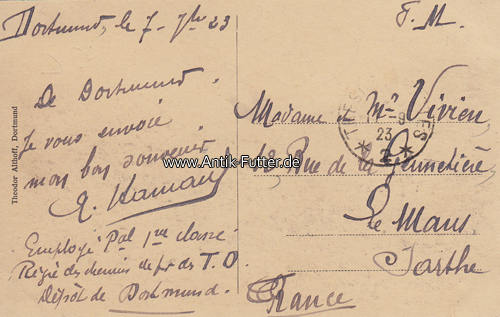 Dortmund, le 7 - 7bre 23
F. M.
De Dortmund.
Je vous envoie
mon bon souvenir
Employé Pal 1re classe
Régie des chemins de fer des T. O.
Dépôt de Dortmund.
Theodor Althoff, Dortmund
Madame & Mr Vivien,
Rue de la
Le Mans
Sarthe
France
TRES
9
23
ES
www.Antik-Futter.de